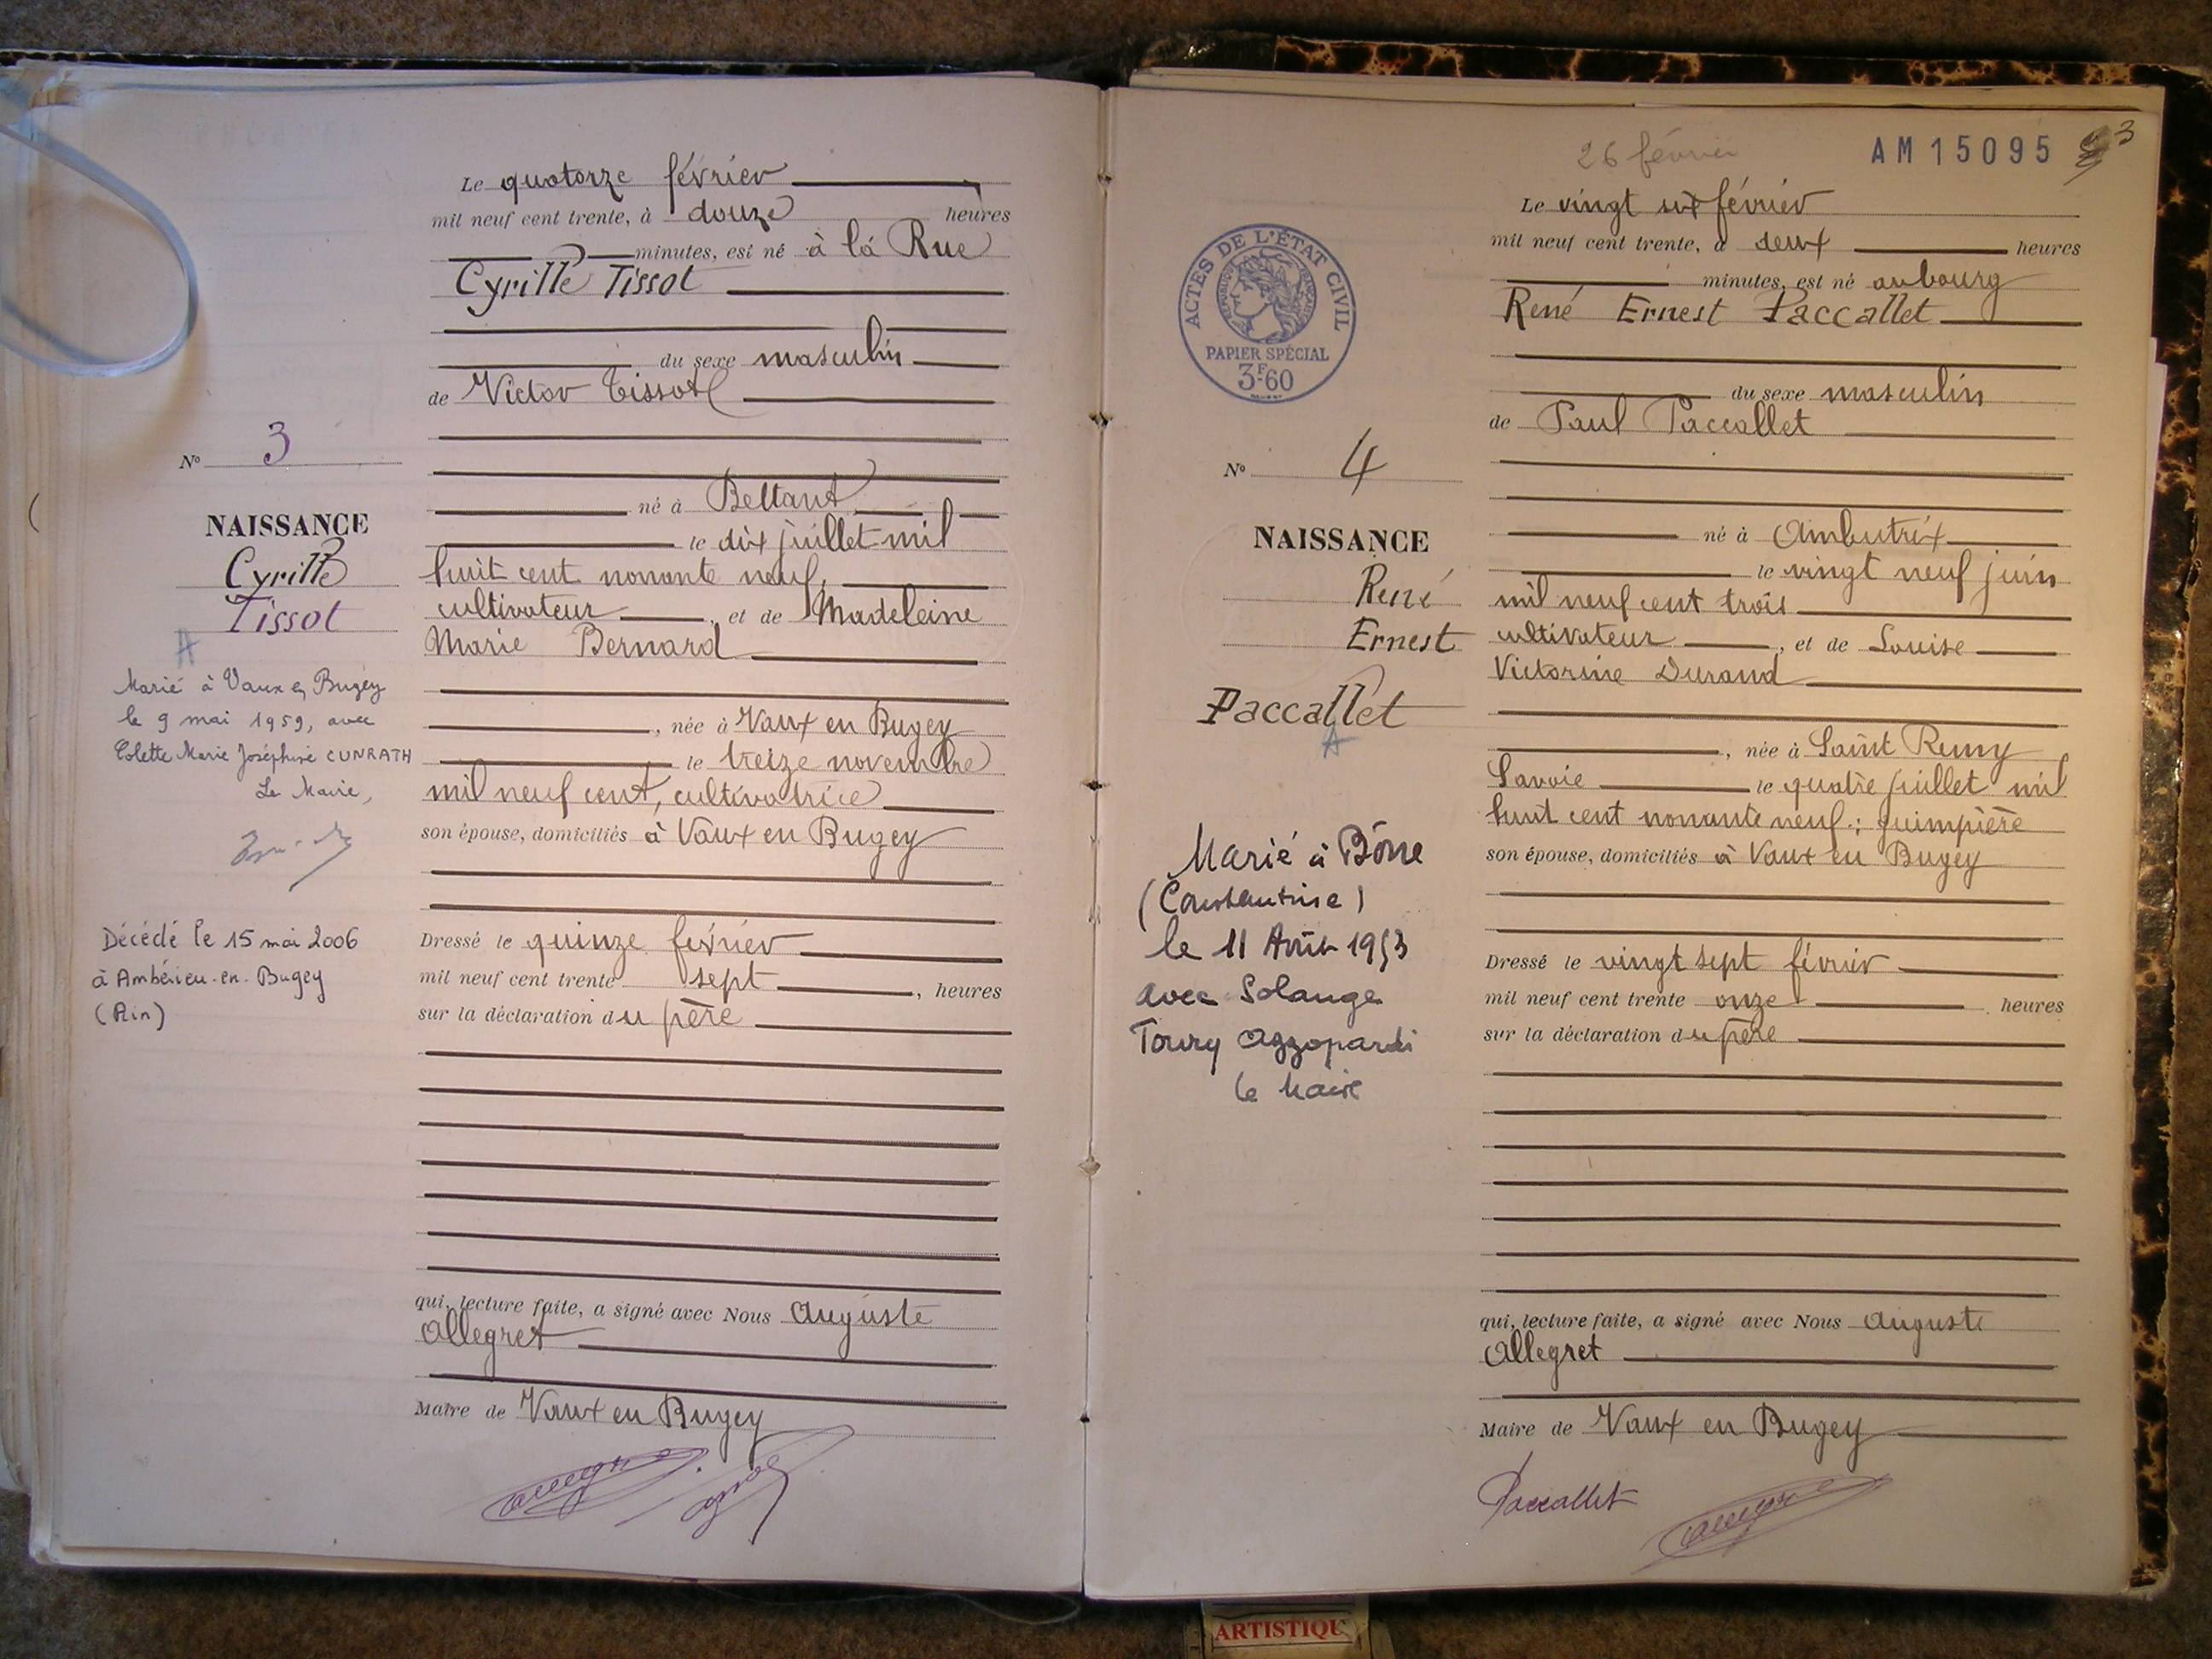 Le quatorze février
mil neuf cent trente, à douze heures
minutes, est né à la Rue
Cyrille Tissot
du sexe masculin
de Victor Tissot
né à
le dix juillet mil
huit cent nonante neuf,
cultivateur, et de Madeleine
Marie Bernard
, née à Vaux en Bugey
le treize novembre
mil neuf cent, cultivatrice
son épouse, domiciliés à Vaux en Bugey
Dressé le quinze février
mil neuf cent trente sept, heures
sur la déclaration du père
qui, lecture faite, a signé avec Nous Auguste
Allegret
Maire de Vaux en Bugey
No 3
NAISSANCE
Cyrille
Tissot
A
Marié à Vaux en Bugey
le 9 mai 1959, avec
Colette Marie Joséphine CUNRATH
Le Maire,
Décédé le 15 mai 2006
à Ambérieu-en-Bugey
(Ain)
26 février
AM15095
3
Le vingt six février
mil neuf cent trente, à deux heures
minutes, est né au bourg
René Ernest Paccallet
du sexe masculin
de Paul Paccallet
né à Ambutrix
le vingt neuf juin
mil neuf cent trois
cultivateur, et de Louise
Victorine Durand
, née à Saint Remy
Savoie le quatre juillet mil
huit cent nonante neuf; guimpière
son épouse, domiciliés à Vaux en Bugey
Dressé le vingt sept février
mil neuf cent trente onze heures
sur la déclaration du père
qui, lecture faite, a signé avec Nous Auguste
Allegret
Maire de Vaux en Bugey
Paccallet
ACTES DE L'ÉTAT CIVIL
RÉPUBLIQUE FRANÇAISE
PAPIER SPÉCIAL
3F60
No 4
NAISSANCE
René
Ernest
Paccallet
A
Marié à Bône
(Constantine)
le 11 Août 1953
avec Solange
Toury Azzopardi
le Maire
ARTISTIQU